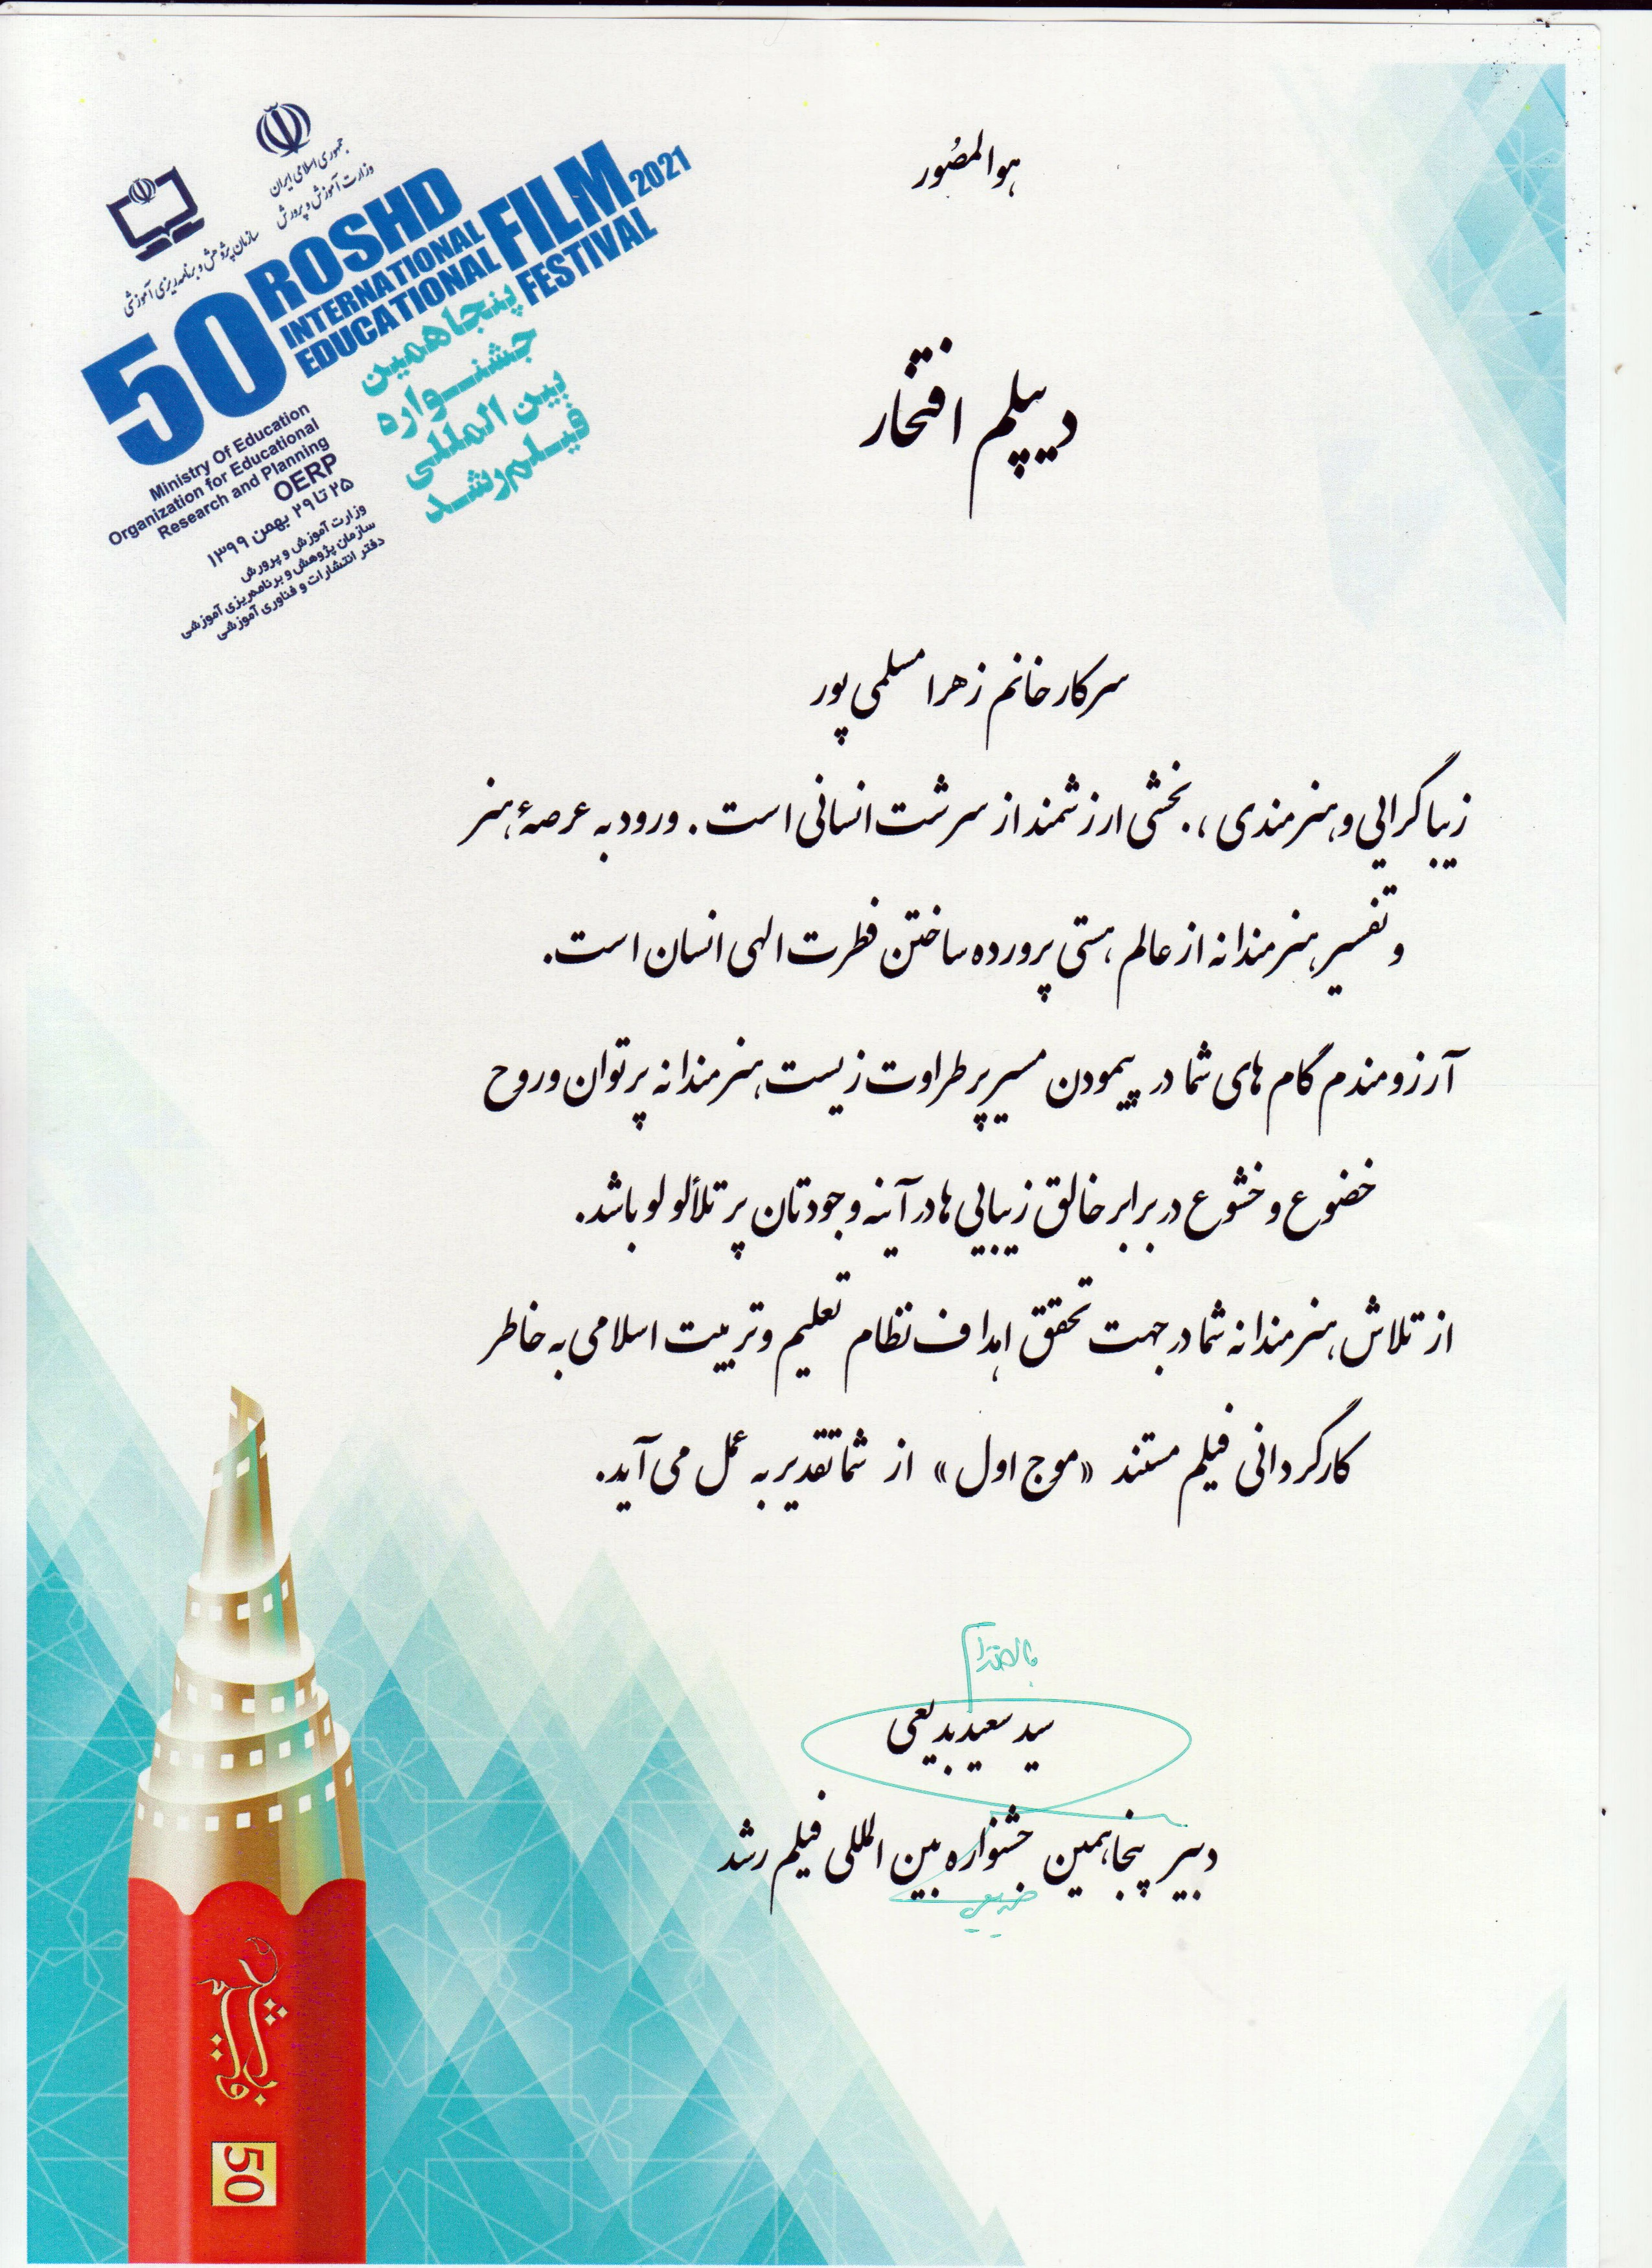 هوالمصُور
جمهوری اسلامی ایران
وزارت آموزش و پرورش
سازمان پژوهش و برنامه‌ریزی آموزشی
50 ROSHD
INTERNATIONAL
EDUCATIONAL
FILM 2021
FESTIVAL
پنجاهمین
جشنواره
بین المللی
فیلم رشد
Ministry Of Education
Organization for Educational
Research and Planning
OERP
۲۵ تا ۲۹ بهمن ۱۳۹۹
وزارت آموزش و پرورش
سازمان پژوهش و برنامه‌ریزی آموزشی
دفتر انتشارات و فناوری آموزشی
دیپلم افتخار
سرکار خانم زهرا مسلمی پور
زیباگرایی و هنرمندی ، بخشی ارزشمند از سرشت انسانی است . ورود به عرصهٔ هنر
و تفسیر هنرمندانه از عالم هستی پرورده ساختن فطرت الهی انسان است.
آرزومندم گام های شما در پیمودن مسیر پر طراوت زیست هنرمندانه پر توان و روح
خضوع و خشوع در برابر خالق زیبایی ها در آینه وجودتان پر تلألو لو باشد.
از تلاش هنرمندانه شما در جهت تحقق اهداف نظام تعلیم و تربیت اسلامی به خاطر
کارگردانی فیلم مستند «موج اول» از شما تقدیر به عمل می آید.
سید سعید بدیعی
دبیر پنجاهمین جشنواره بین المللی فیلم رشد
50